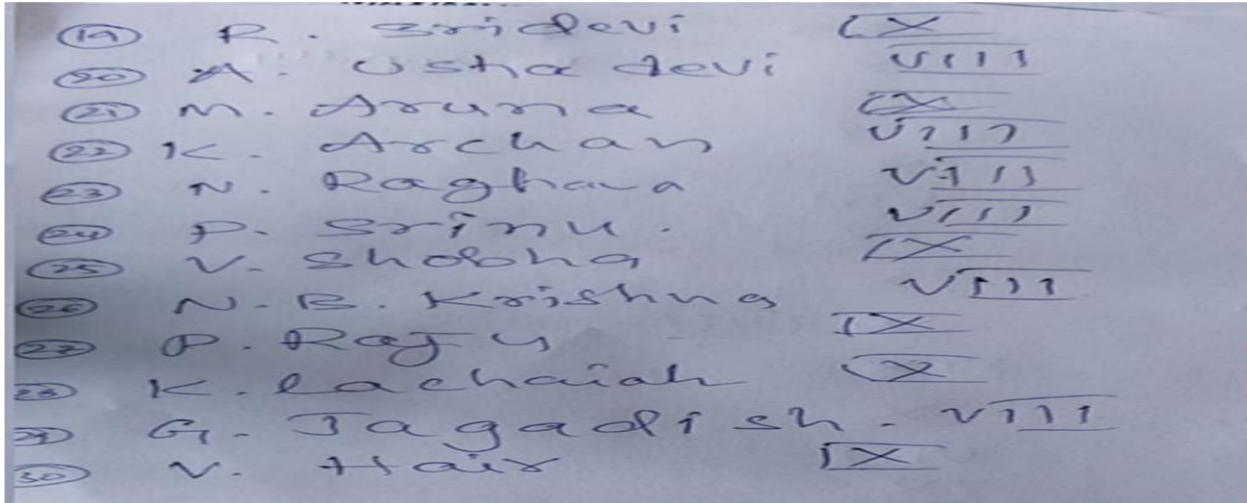 19 R. Sridevi IX
20 A. Usha devi VIII
21 M. Aruna IX
22 K. Archan VIII
23 N. Raghava VIII
24 P. Srinu. VIII
25 V. Shobha IX
26 N. B. Krishna VIII
27 P. Raju IX
28 K. Lachaiah IX
29 G. Jagadish. VIII
30 V. Hair IX